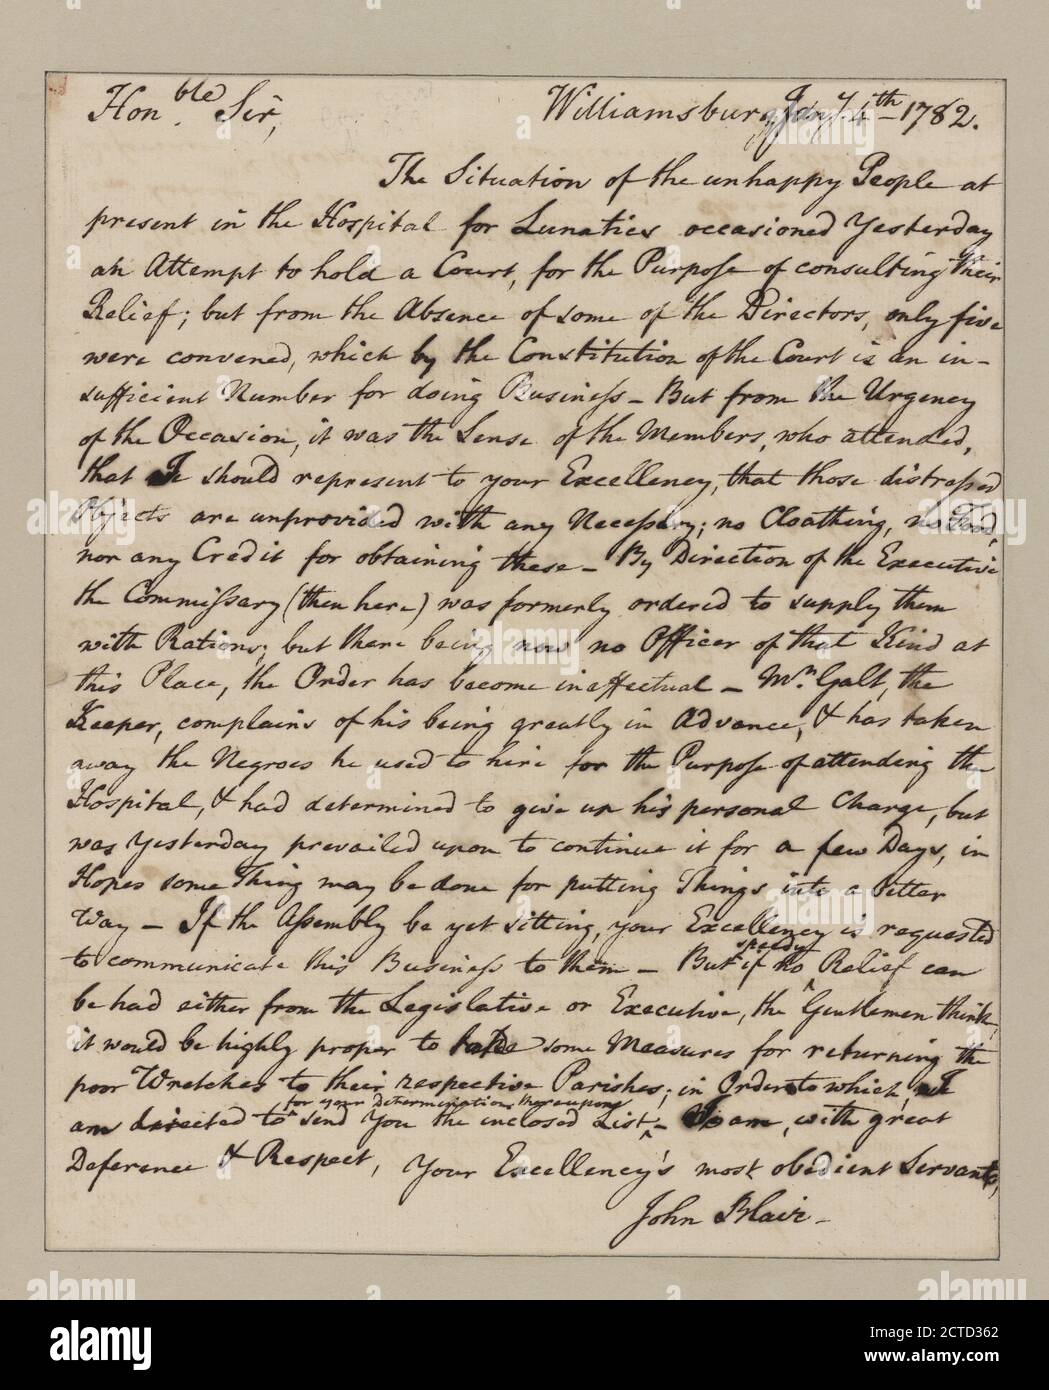 Hon.ble Sir, Williamsburg, Jany. 4th 1782.
The Situation of the unhappy People at
present in the Hospital for Lunatics occasioned Yesterday
an Attempt to hold a Court, for the Purpose of consulting Their
Relief; but from the Absence of some of the Directors, only five
were convened, which by the Constitution of the Court is an in-
sufficient Number for doing Business – But from the Urgency
of the Occasion, it was the Sense of the Members, who attended,
that I should represent to your Excellency, that those distressed
Objects are unprovided with any Necessary; no Cloathing, no Food,
nor any Credit for obtaining these – By Direction of the Executive
the Commissary (then here) was formerly ordered to supply them
with Rations; but there being now no Officer of that Kind at
this Place, the Order has become ineffectual – Mr. Galt, the
Keeper, complains of his being greatly in Advance, & has taken
away the Negroes he used to hire for the Purpose of attending the
Hospital, & had determined to give up his personal Charge, but
was Yesterday prevailed upon to continue it for a few Days, in
Hopes some Thing may be done for putting Things into a better
Way – If the Assembly be yet sitting, your Excellency is requested
to communicate this Business to them – But if no speedy Relief can
be had either from the Legislative or Executive, the Gentlemen think,
it would be highly proper to take some Measures for returning the
poor Wretches to their respective Parishes; in Order to which, I
am directed to send You the inclosed List, for your Determination thereupon – I am, with great
Deference & Respect, Your Excellency's most obedient Servant,
John Blair –
alamy
Image ID: 2CTD362
www.alamy.com